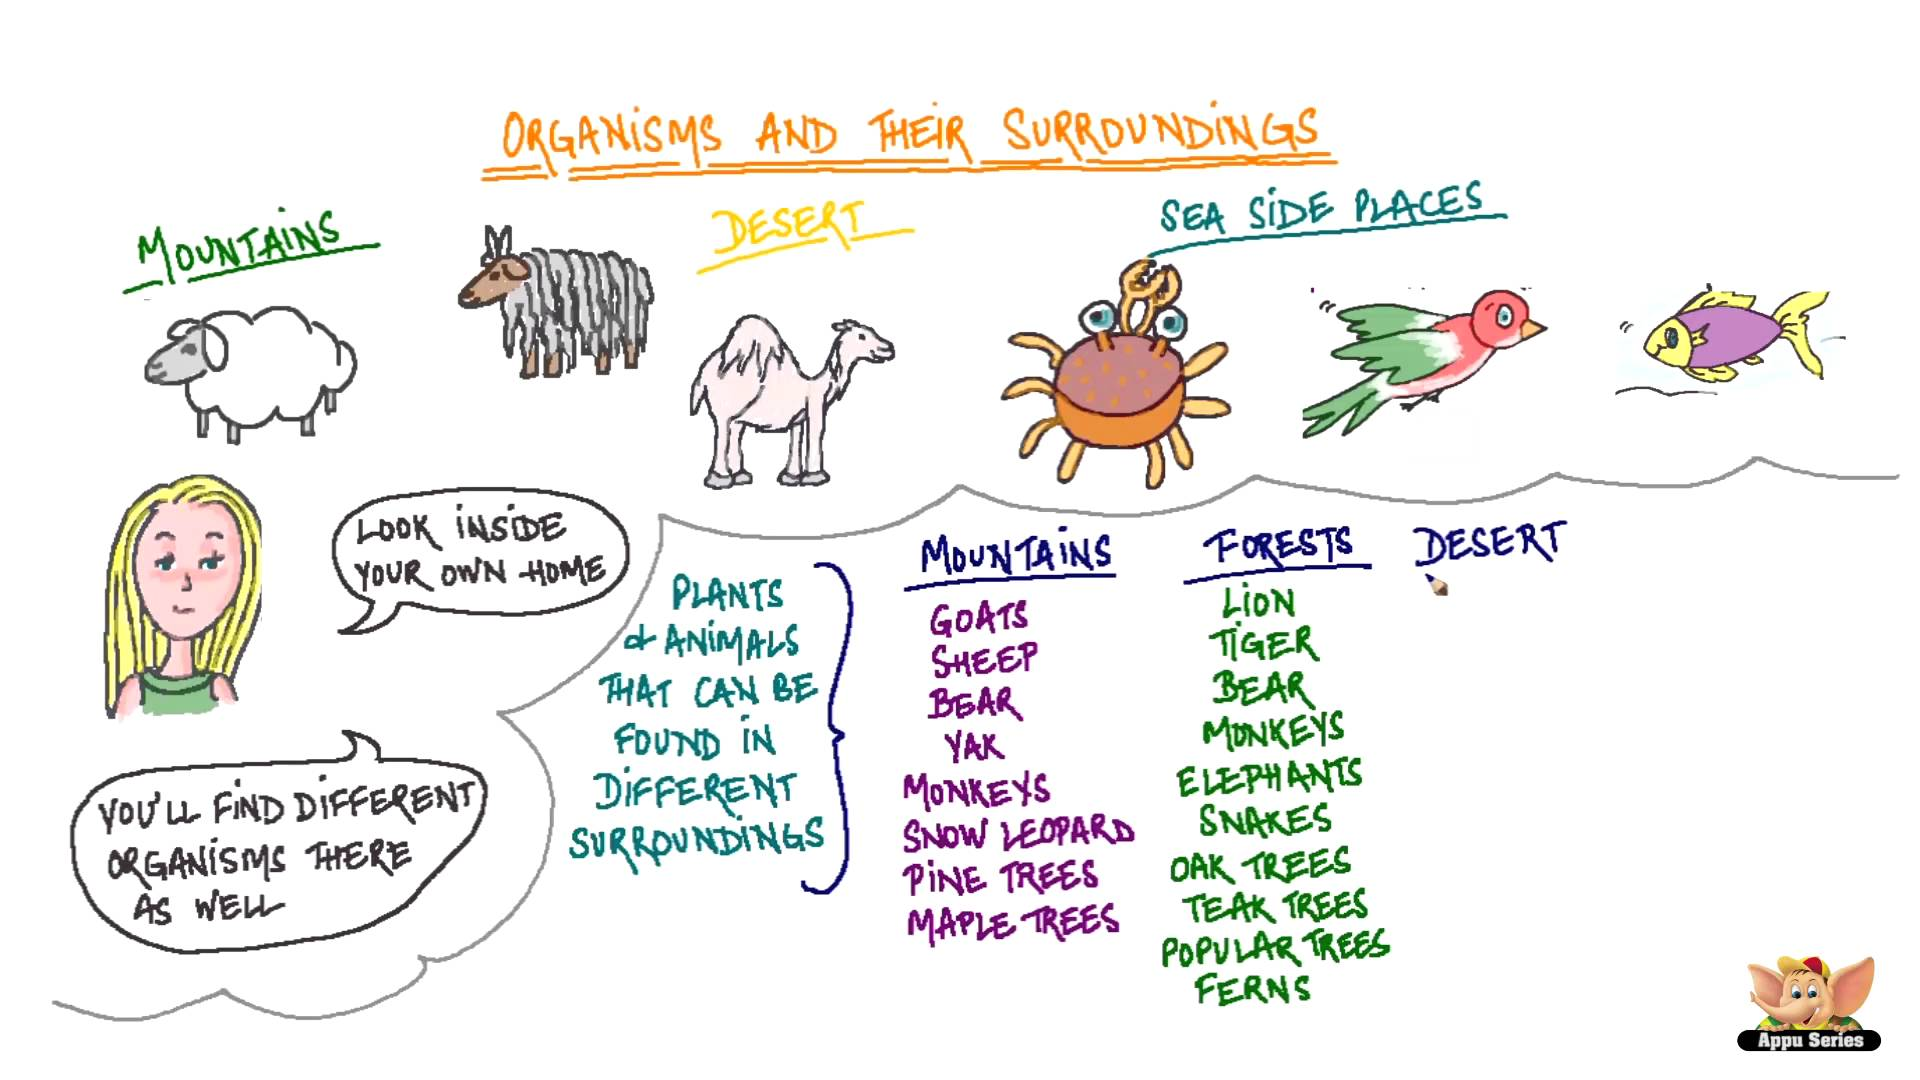 ORGANISMS AND THEIR SURROUNDINGS
MOUNTAINS
DESERT
SEA SIDE PLACES
LOOK INSIDE
YOUR OWN HOME
YOU'LL FIND DIFFERENT
ORGANISMS THERE
AS WELL
PLANTS
& ANIMALS
THAT CAN BE
FOUND IN
DIFFERENT
SURROUNDINGS
MOUNTAINS
GOATS
SHEEP
BEAR
YAK
MONKEYS
SNOW LEOPARD
PINE TREES
MAPLE TREES
FORESTS
LION
TIGER
BEAR
MONKEYS
ELEPHANTS
SNAKES
OAK TREES
TEAK TREES
POPULAR TREES
FERNS
DESERT
Appu Series